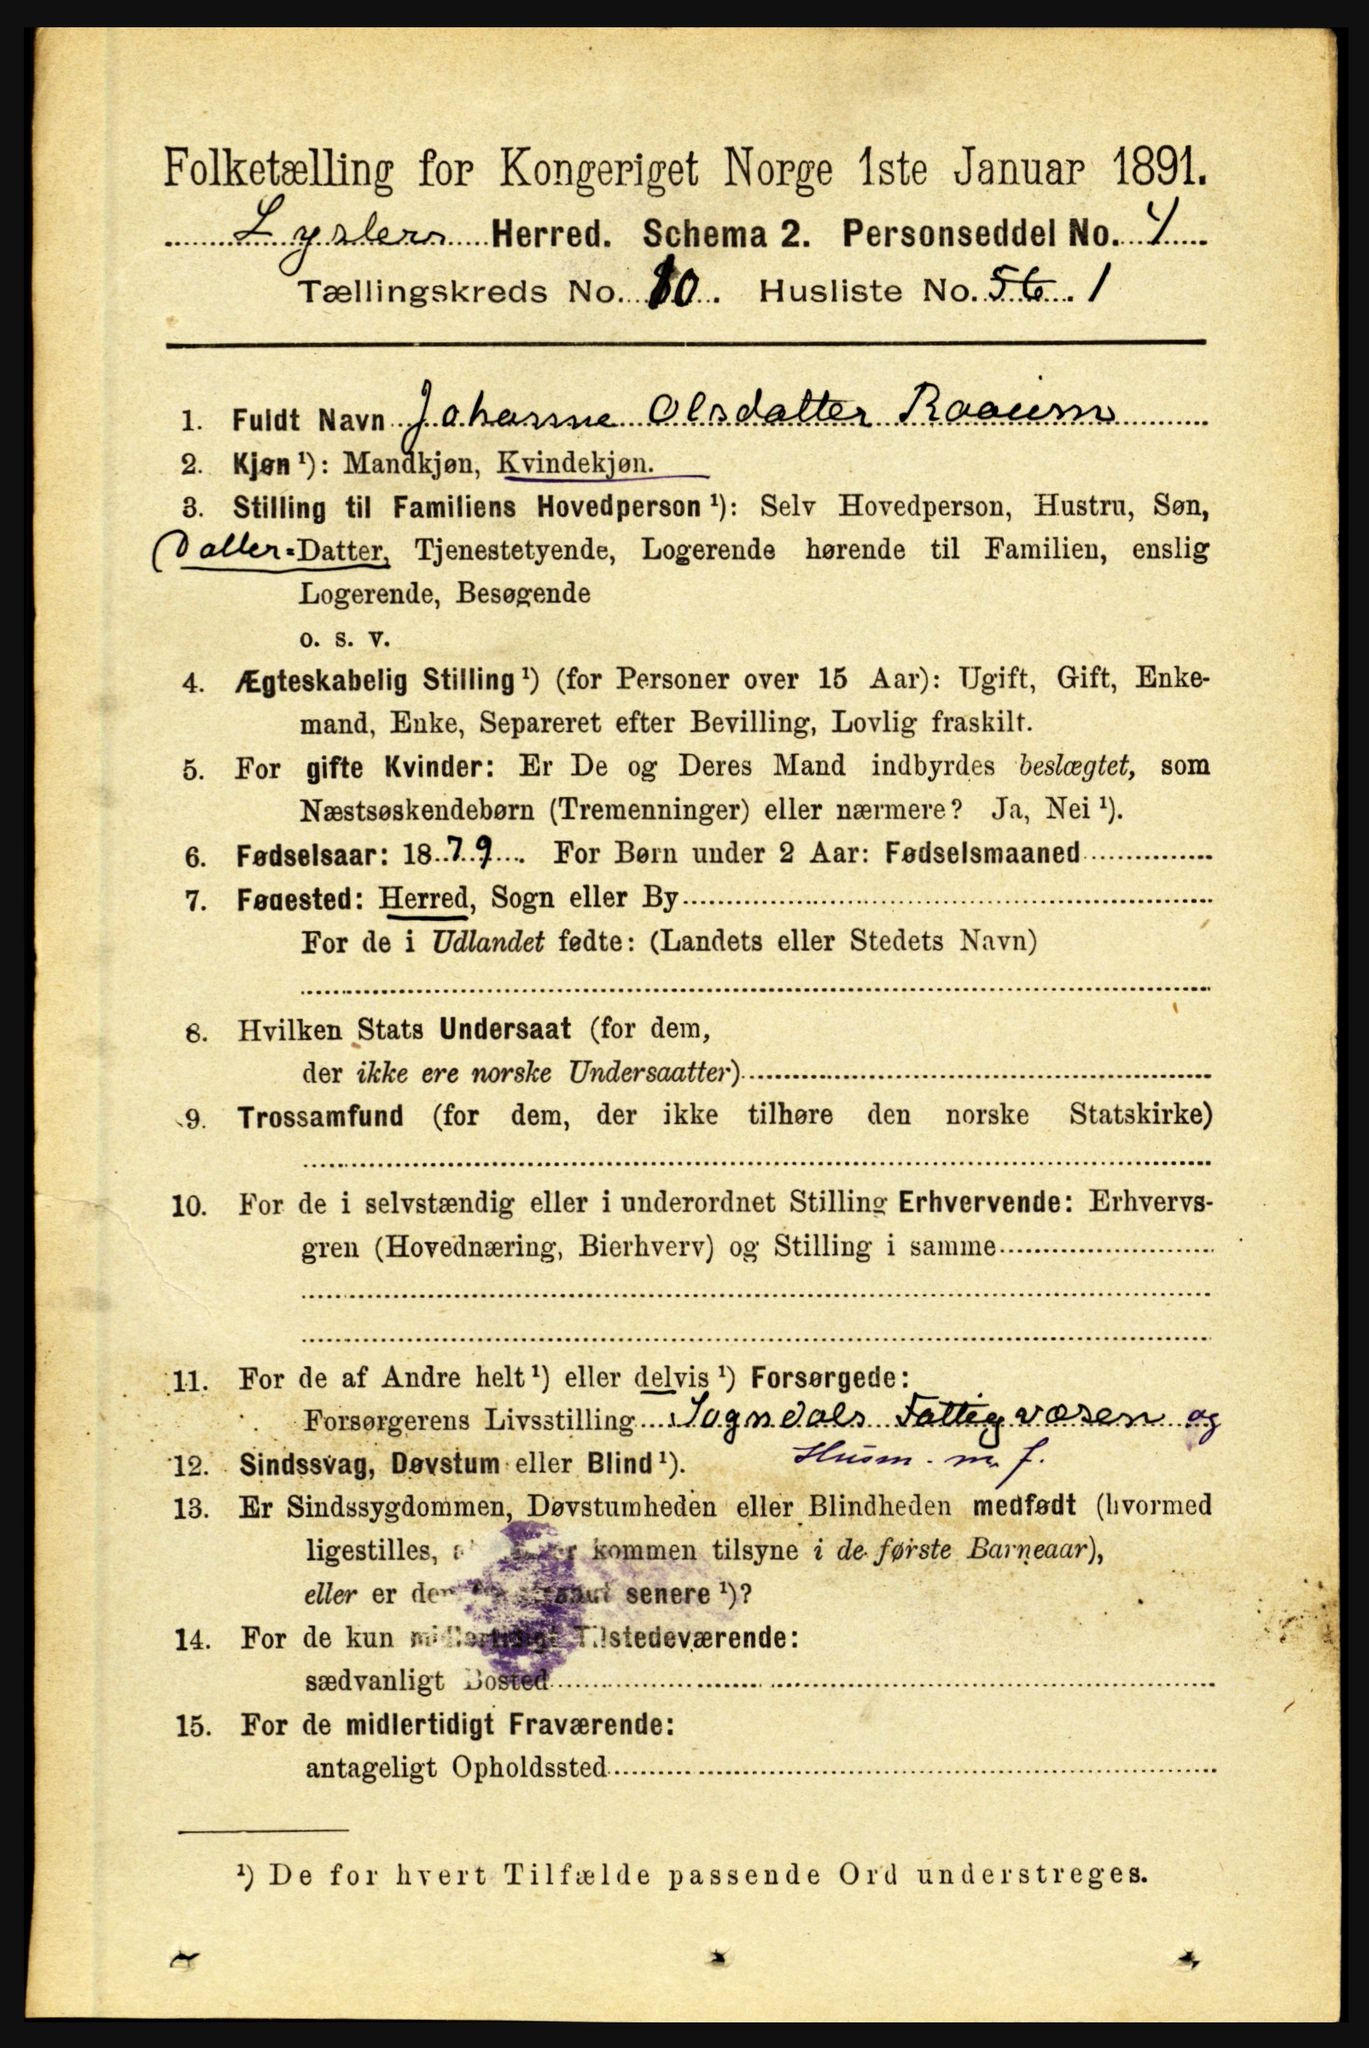 Folketælling for Kongeriget Norge 1ste Januar 1891.
Lysters Herred. Schema 2. Personseddel No. 4
Tællingskreds No. 10. Husliste No. 56. 1
1. Fuldt Navn Johanne Olsdatter Raaum
2. Kjøn ¹): Mandkjøn, Kvindekjøn.
3. Stilling til Familiens Hovedperson ¹): Selv Hovedperson, Hustru, Søn,
(Datter-Datter, Tjenestetyende, Logerende hørende til Familien, enslig
Logerende, Besøgende
o. s. v.
4. Ægteskabelig Stilling ¹) (for Personer over 15 Aar): Ugift, Gift, Enke-
mand, Enke, Separeret efter Bevilling, Lovlig fraskilt.
5. For gifte Kvinder: Er De og Deres Mand indbyrdes beslægtet, som
Næstsøskendebørn (Tremenninger) eller nærmere? Ja, Nei ¹).
6. Fødselsaar: 1879. For Børn under 2 Aar: Fødselsmaaned
7. Føaested: Herred, Sogn eller By
For de i Udlandet fødte: (Landets eller Stedets Navn)
8. Hvilken Stats Undersaat (for dem,
der ikke ere norske Undersaatter)
9. Trossamfund (for dem, der ikke tilhøre den norske Statskirke)
10. For de i selvstændig eller i underordnet Stilling Erhvervende: Erhvervs-
gren (Hovednæring, Bierhverv) og Stilling i samme
11. For de af Andre helt ¹) eller delvis ¹) Forsørgede:
Forsørgerens Livsstilling Sogndals Fattigvæsen og
Husm. m. f.
12. Sindssvag, Døvstum eller Blind ¹).
13. Er Sindssygdommen, Døvstumheden eller Blindheden medfødt (hvormed
ligestilles, kommen tilsyne i de første Barneaar),
eller er den senere ¹)?
14. For de kun midlertidigt Tilstedeværende:
sædvanligt Bosted
15. For de midlertidigt Fraværende:
antageligt Opholdssted
¹) De for hvert Tilfælde passende Ord understreges.